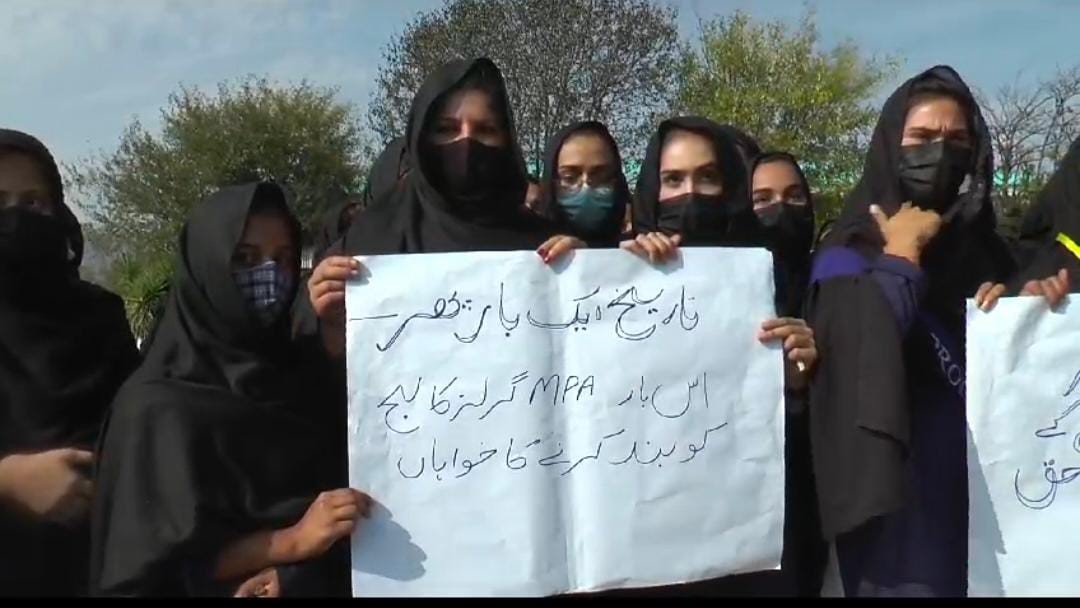 تاریخ ایک بار پھر
اس بار MPA گرلز کالج
کو بند کرنے کا خواہاں
کے
حق